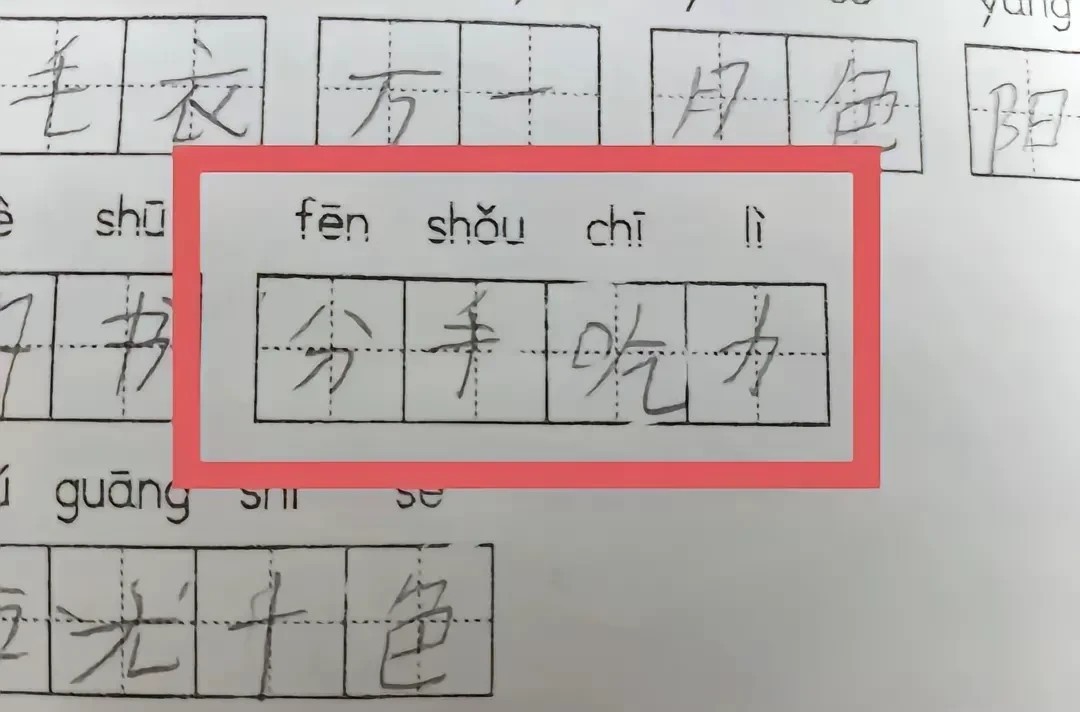 yáng
毛衣 万一 月色 阳
shū fēn shǒu chī lì
书 分手吃力
guāng shí sè
光十色